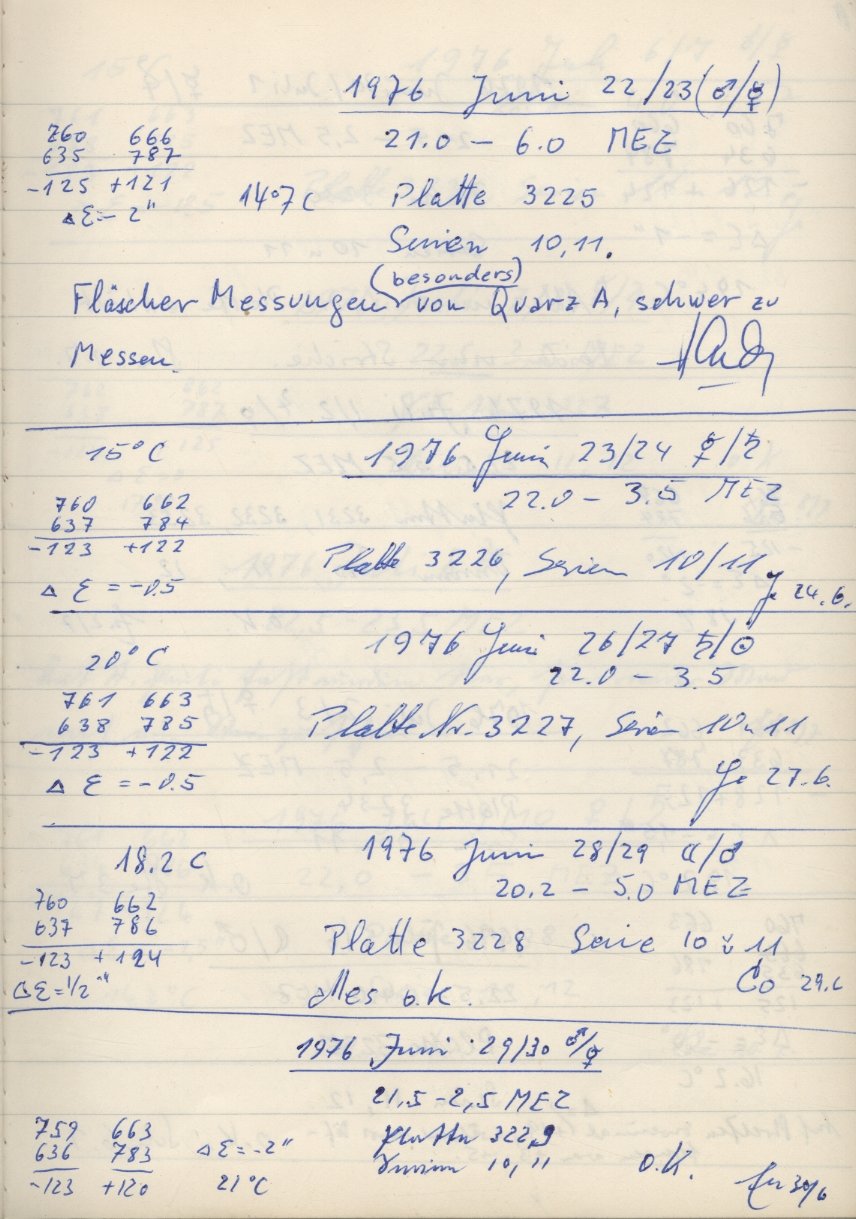 1976 Juni 22/23 (♂/☿)
760 666 21.0 – 6.0 MEZ
635 787
-125 +121 14°7C Platte 3225
Δε = -2"
Serien 10,11.
(besonders)
Fläscher Messungen von Quarz A, schwer zu
Messen.
15°C 1976 Juni 23/24 ☿/♃
760 662 22.0 – 3.5 MEZ
637 784
-123 +122 Platte 3226, Serien 10/11
Δ ε = -0.5 24.6.
1976 Juni 26/27 ♄/☉
20°C 22.0 – 3.5
761 663
638 785 Platte Nr. 3227, Serien 10 u 11
-123 +122
Δ ε = -0.5 27.6.
18.2 C 1976 Juni 28/29 ☾/♂
760 662 20.2 – 5.0 MEZ
637 786
-123 +124 Platte 3228 Serie 10 u 11
Δε = 1/2" Alles o.k. Co 29.6
1976 Juni 29/30 ♂/☿
21,5 – 2,5 MEZ
759 663 Platten 3229
636 783 Δε = -2" Serien 10, 11 O.K.
-123 +120 21°C 30/6